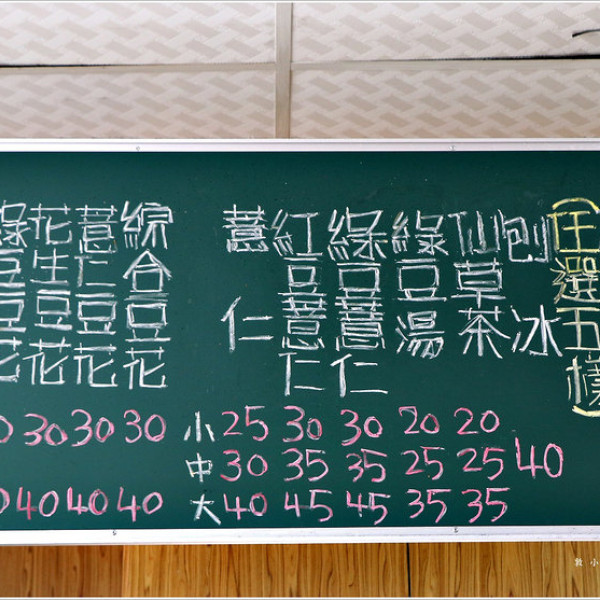 (任選五樣)
刨冰
仙草茶
綠豆湯
綠豆薏仁
紅豆薏仁
薏仁
綜合豆花
薏仁豆花
花生豆花
綠豆豆花
小 25 30 30 20 20
中 30 35 35 25 25 40
大 40 45 45 35 35
0 30 30 30
0 40 40 40